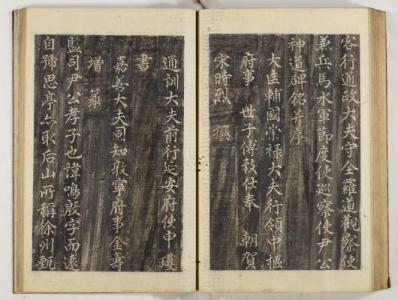 客行通政大夫守全羅道觀察使
兼兵馬水軍節度使巡察使尹公
神道碑銘幷序
大匡輔國崇祿大夫行領中樞
府事 世子傅致仕奉 朝賀
宋時烈 撰
通訓大夫前行延安府使申
書
嘉善大夫同知敦寧府事金壽
增 篆
監司尹公孝子也諱鳴殷字而遠
自號思亭亦取后山所稱徐州甄